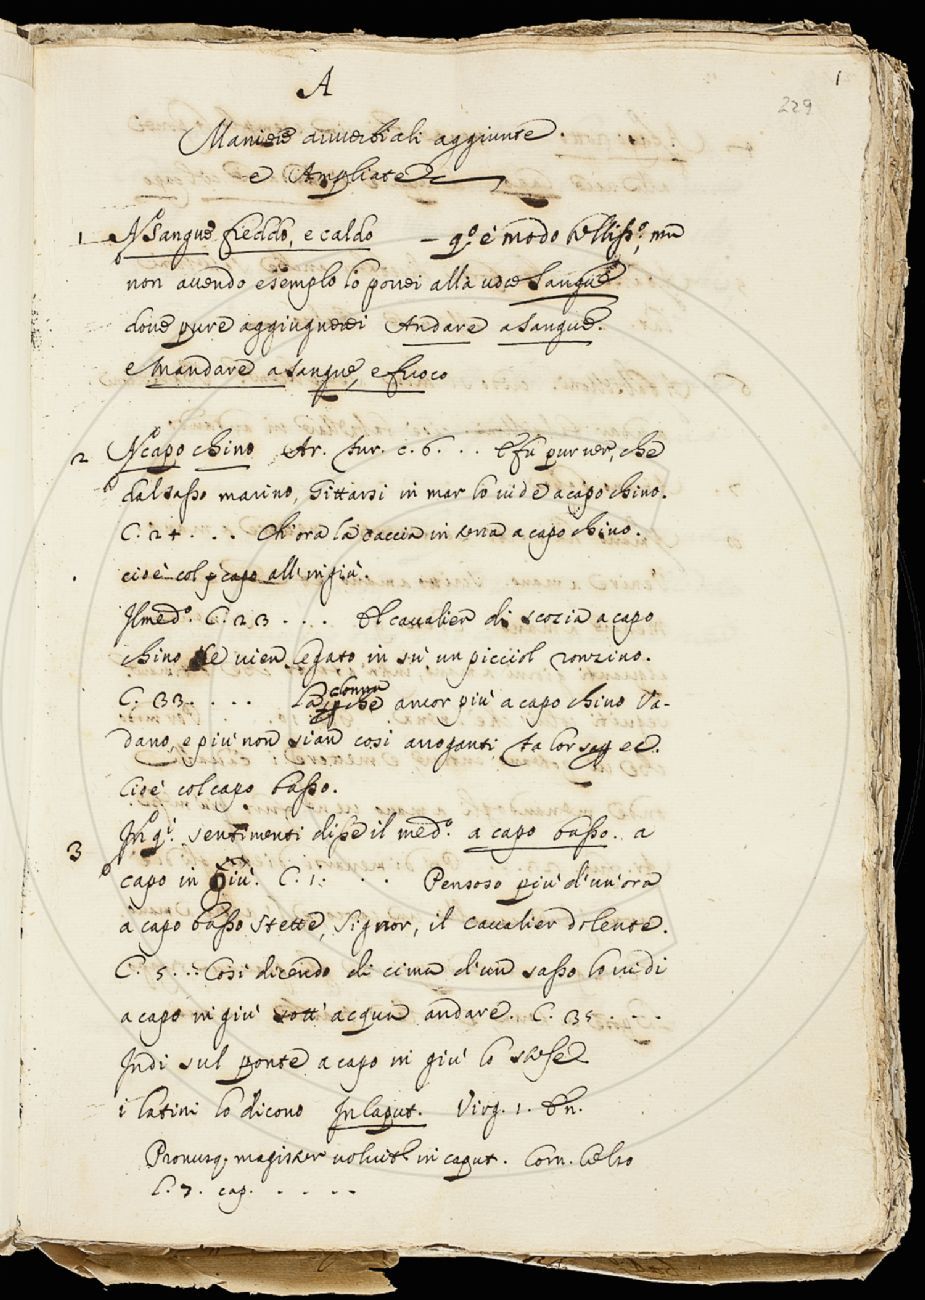 1
229
A
Maniere avverbiali aggiunte
e Ampliate
1 A Sangue freddo, e caldo — q.o è modo belliss.o, ma
non avendo esemplo lo porrei alla voce Sangue
dove pure aggiugnerei Andare a sangue.
e Mandare a sangue, e fuoco
2 A capo chino Ar. fur. c. 6. . . E fu pur ver, che
dal sasso marino, Gittarsi in mar lo vide a capo chino.
C. 24 . . . Ch'ora la caccia in terra a capo chino.
cioè col capo all'ingiù.
Il med.o C. 23 . . . El cavalier di scozia a capo
chino Ne vien legato in su un picciol ronzino.
C. 33 . . . . La donna che ancor più a capo chino Va-
dano, e più non sian così arroganti
Cioè col capo basso.
3 In q.i sentimenti disse il med.o a capo basso. a
capo in giù. C. 1. . . Pensoso più d'un'ora
a capo basso stette, Signor, il cavalier dolente.
C. 5. . . Così dicendo di cima d'un sasso lo vidi
a capo in giù sott' acqua andare. C. 35 . . .
Indi sul ponte a capo in giù lo stese
i latini lo dicono In Caput. Virg. 1. En.
Pronusq. magister volvit. in caput. Corn. Celso
l. 7. cap. . . . . .